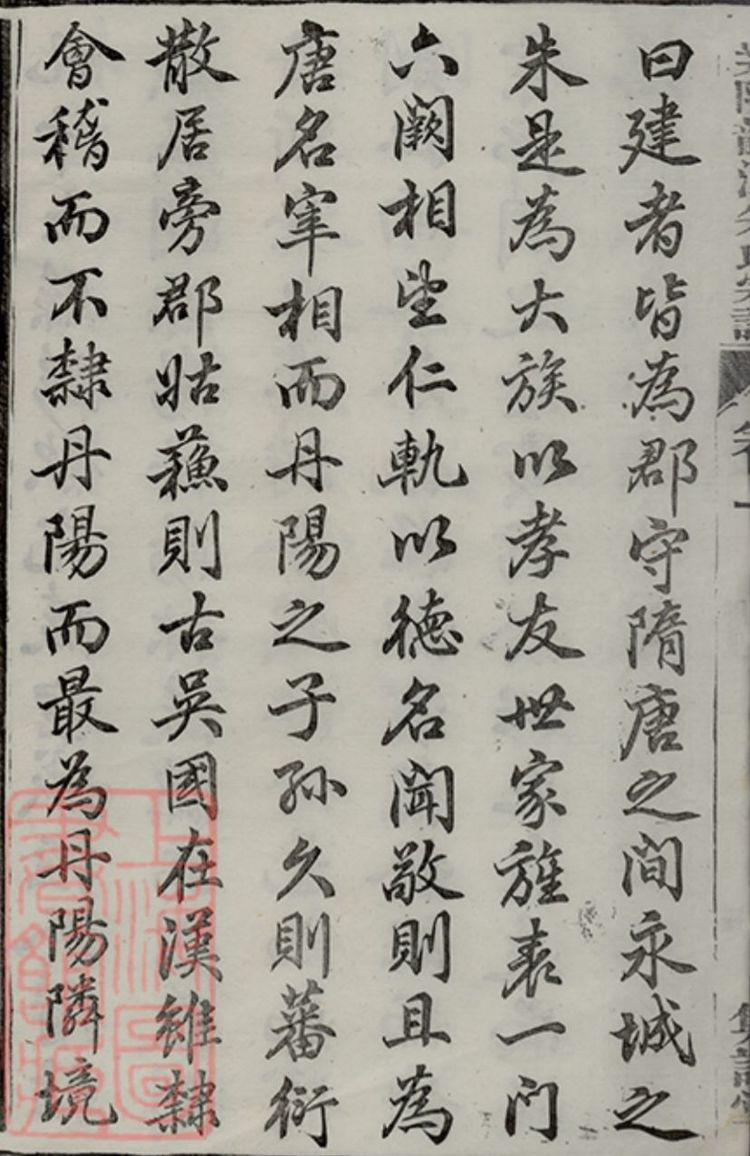 曰建者皆為郡守隋唐之間永城之
朱是為大族以孝友世家旌表一门
六闕相望仁軌以德名聞敬則且為
唐名宰相而丹陽之子孫久則蕃衍
散居旁郡姑蘓則古吳國在漢雖隸
會稽而不隸丹陽而最為丹陽隣境